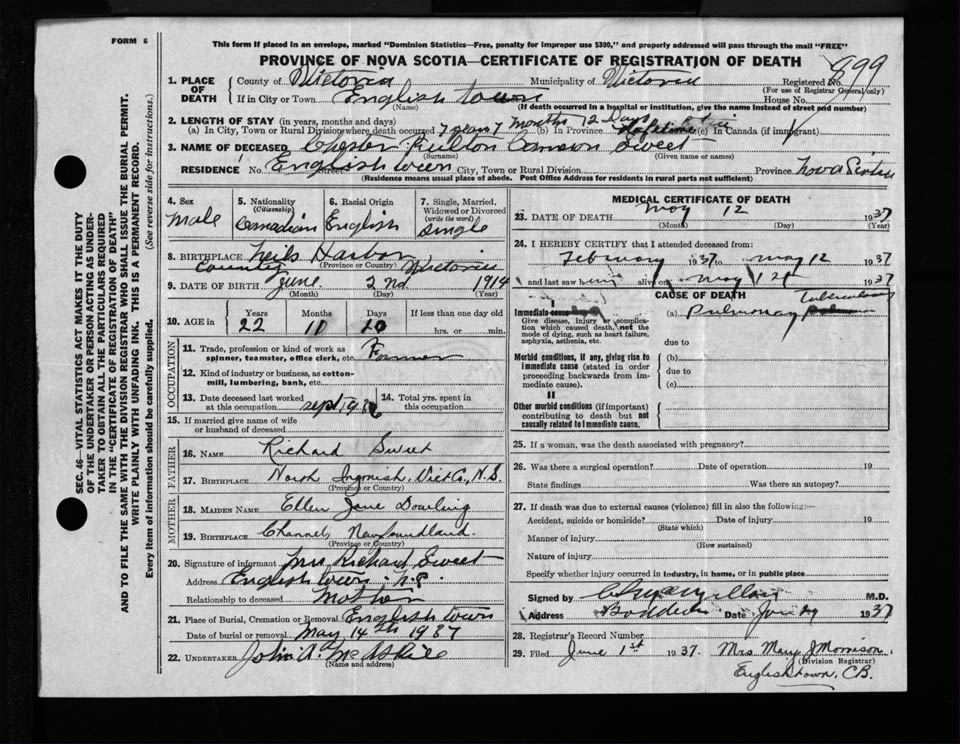 FORM 6
This form if placed in an envelope, marked "Dominion Statistics—Free, penalty for improper use $300," and properly addressed will pass through the mail "FREE"
PROVINCE OF NOVA SCOTIA—CERTIFICATE OF REGISTRATION OF DEATH
SEC. 46—VITAL STATISTICS ACT MAKES IT THE DUTY
OF THE UNDERTAKER OR PERSON ACTING AS UNDER-
TAKER TO OBTAIN ALL THE PARTICULARS REQUIRED
IN THE "CERTIFICATE OF REGISTRATION OF DEATH"
AND TO FILE THE SAME WITH THE DIVISION REGISTRAR WHO SHALL ISSUE THE BURIAL PERMIT.
WRITE PLAINLY WITH UNFADING INK. THIS IS A PERMANENT RECORD.
Every item of information should be carefully supplied. (See reverse side for instructions.)
1. PLACE OF DEATH County of Victoria Municipality of Victoria Registered No. 899
(For use of Registrar General only)
If in City or Town English town House No.
(Name) (If death occurred in a hospital or institution, give the name instead of street and number)
2. LENGTH OF STAY (in years, months and days)
(a) In City, Town or Rural Division where death occurred 7 years 7 months 12 Days (b) In Province (c) In Canada (if immigrant)
3. NAME OF DECEASED Chester Cameron Sweet
(Surname) (Given name or names)
RESIDENCE No. English town Street City, Town or Rural Division Province Nova Scotia
(Residence means usual place of abode. Post Office Address for residents in rural parts not sufficient)
4. Sex Male
5. Nationality (Citizenship) Canadian
6. Racial Origin English
7. Single, Married, Widowed or Divorced (write the word) Single
8. BIRTHPLACE Neils Harbor
County (Province or Country) Victoria
9. DATE OF BIRTH June 2nd 1914
(Month) (Day) (Year)
10. AGE in Years 22 Months 11 Days 10 If less than one day old hrs. or min.
OCCUPATION
11. Trade, profession or kind of work as spinner, teamster, office clerk, etc. Farmer
12. Kind of industry or business, as cotton-mill, lumbering, bank, etc.
13. Date deceased last worked at this occupation Sept 1936
14. Total yrs. spent in this occupation
15. If married give name of wife or husband of deceased
FATHER
16. NAME Richard Sweet
17. BIRTHPLACE North Ingonish, Vict Co., N.S.
(Province or Country)
MOTHER
18. MAIDEN NAME Ellen Jane Dowling
19. BIRTHPLACE Channel Newfoundland.
(Province or Country)
20. Signature of informant Mrs Richard Sweet
Address English town N.S.
Relationship to deceased Mother
21. Place of Burial, Cremation or Removal English town
Date of burial or removal May 14th 1937
22. UNDERTAKER John A. McAskill
(Name and address)
MEDICAL CERTIFICATE OF DEATH
23. DATE OF DEATH May 12 1937
(Month) (Day) (Year)
24. I HEREBY CERTIFY that I attended deceased from:
February 1937 to May 12 1937
and last saw him alive on May 12th 1937
CAUSE OF DEATH
Immediate cause
Give disease, injury or complication which caused death, not the mode of dying, such as heart failure, asphyxia, asthenia, etc.
(a) Pulmonary Tuberculosis
due to
Morbid conditions, if any, giving rise to immediate cause (stated in order proceeding backwards from immediate cause).
(b)
due to
(c)
II
Other morbid conditions (if important) contributing to death but not causally related to immediate cause.
25. If a woman, was the death associated with pregnancy?
26. Was there a surgical operation? Date of operation 19
State findings Was there an autopsy?
27. If death was due to external causes (violence) fill in also the following:—
Accident, suicide or homicide? Date of injury 19
(State which)
Manner of injury
(How sustained)
Nature of injury
Specify whether injury occurred in industry, in home, or in public place
Signed by M.D.
Address Baddeck Date 1937
28. Registrar's Record Number
29. Filed June 1st 1937. Mrs Mary J Morrison
(Division Registrar)
Englishtown, C.B.